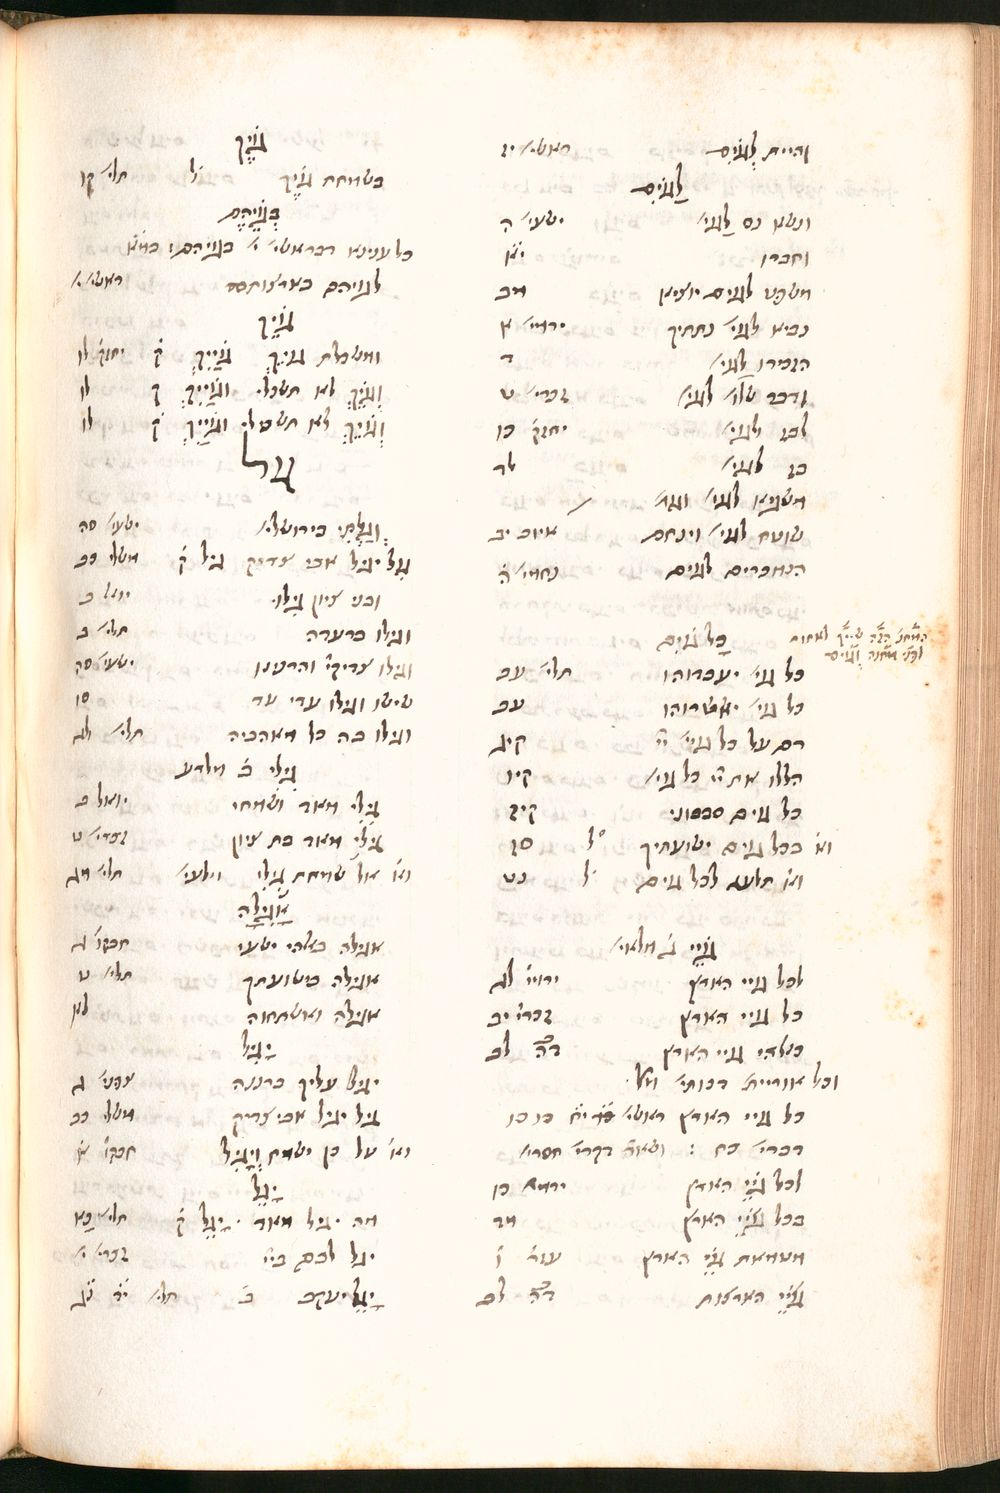 והיית לְגוֹיִם ראשי׳ יז
לַגוֹיִם
ונשא נס לַגוי׳ ישעי׳ ה
וחברו יא
משפט לגוים יוציא מב
נביא לגוי׳ נתתיך ירמי׳ א
הזכירו לַגוי׳ ד
ודבר שלו׳ לגוי׳ זכרי׳ ט
לבז לגוי׳ יחזק׳ כו
בז לגוי׳ לד
משגיא לגוי׳
שוטח לגוי׳ וינחם איוב יב
הנמכרים לגוים נחמי׳ ה
כָל גוֹיִם
כל גוי׳ יעבדוהו תלי׳ עב
כל גוי׳ יאשרוהו עב
רם על כל גוי׳ יי קיג
הללו את יי כל גוי׳ קיז
כל גוים סבבוני קיח
וא׳ בכל גוים ישועתיך סז
וא׳ תלעג לכל גוים נט
גוֹיֵי ב׳ מלאי׳
לכל גויי הארץ ירמי׳ לג
כל גויי הארץ זכרי׳ יב
כאלהי גויי הארץ דה לב
וכל אוריית׳ דכותי׳
כל גויי הארץ ראשי׳ יח כו כו
דברי׳ כח :
לכל גוֹיֵי הארץ ירמיה כו
בכל גוֹיֵי הארץ מד
מטמאת גוֹיֵ הארץ עזר׳ ו
גוֹיֵי הארצות דה לב
המ׳ הזה שייך לאחות
לפני מחנה וגוים
גוֹיֶךָ
בשמחת גוֹיֶך ל תלי׳ קו
בְּגוֹיֵהֶם
כל ענינא דבראשי׳ י׳ בגויהם:
לגויהם בארצותם ראשי׳ י׳
גוֹיֵךְ
ומשכלת גויֵךְ גוֹיַיִךְ ק׳ יחזק׳ לו
וְגוֹיֵךְ לא תשכלי וגוֹיַיִךְ ק לו
וְגוֹיֵךְ לא תשכלי וגוֹיַיִךְ ק׳ לו
גיל
וְגַלְתִּי בירושל׳ ישעי׳ סה
גול יגיל אבי צדיק גיל ק׳ משלי כג
ובני ציון גילו יואל ב
וגילו ברעדה תלי׳ ב
וגילו צדיקי׳ והרנינו ישעי׳ סה
שישו וגילו עדי עד סו
וגילו בה כל אוהביה תלי׳ לג
גִילִי ב׳ מלרע
גִילִי מאד ושמחי יואל ב
גִילִי מאד בת ציון זכרי׳ ט
וא׳ אל שמחת גִילִי וילעי׳ תלי׳ מג
אָגִילָה
אגילה באלהי ישעי חבקו׳ ג
אגילה בישועתך תלי׳ ט
אגילה ואשמחה לא
יָגִיל
יגיל עליך ברננה צפני׳ ג
גיל יגיל אבי צדיק משלי כג
וא׳ על כן ישמח וְיָגִיל חבקו׳ א
יָגֶל
מה יגיל מאד יָגֶל ק׳ תלי׳ כא
יגל לבם ביי׳ זכרי׳ י׳
יָגֵל יעקב ב׳ תלי׳ יד נג